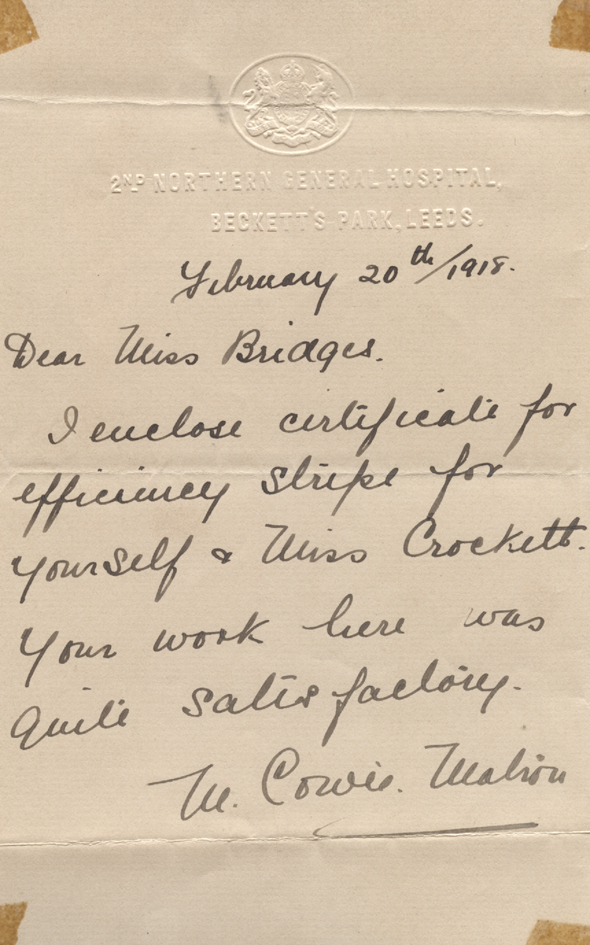 2ND NORTHERN GENERAL HOSPITAL,
BECKETT'S PARK, LEEDS.
February 20th/1918.
Dear Miss Bridges.
I enclose certificate for
efficiency stripe for
yourself & Miss Crockett.
Your work here was
quite satisfactory.
M. Cowie. Matron